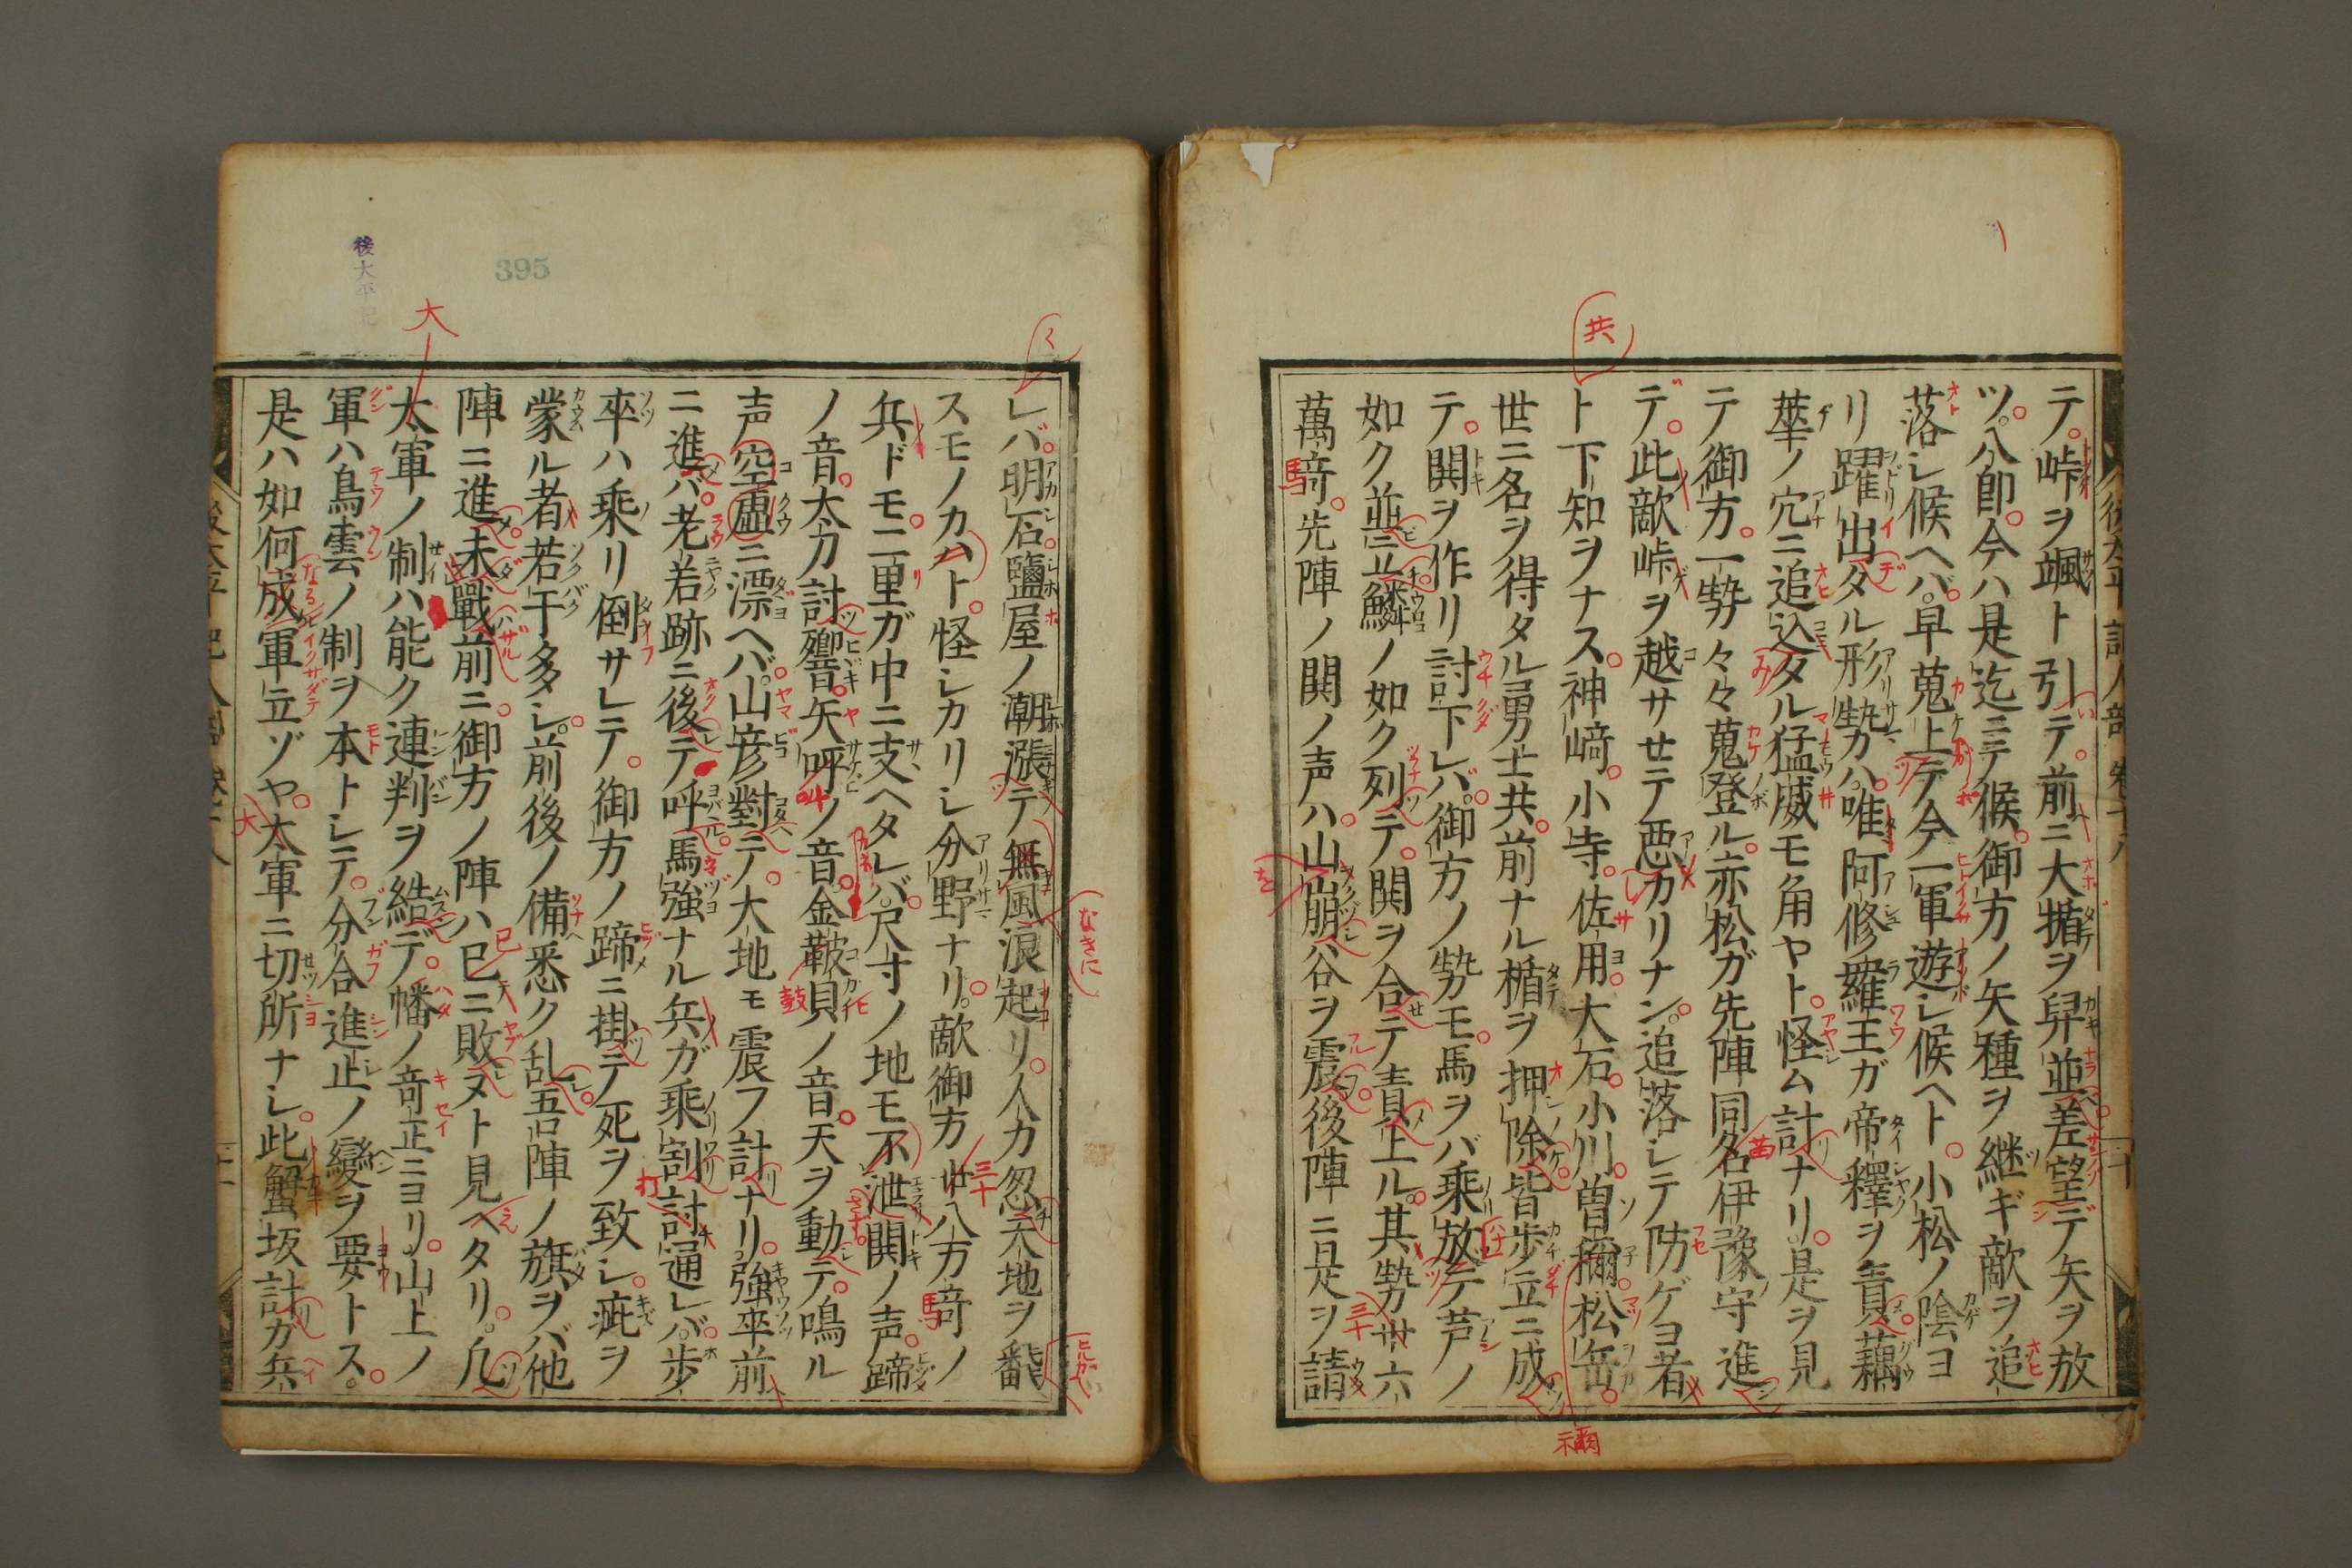 テ峠ヲ颯ト引テ前ニ大楯ヲ舁並差望デ矢ヲ放
ツ八郎今ハ是迄ニテ候御方ノ矢種ヲ継ギ敵ヲ追
落シ候ヘバ早蒐上テ今一軍遊シ候ヘト小松ノ陰ヨ
リ躍出タル形勢ハ唯阿修羅王ガ帝釋ヲ責藕
ノ穴ニ追込タル猛威モ角ヤト怪ム計ナリ是ヲ見
テ御方一勢々々蒐登ル赤松ガ先陣同名伊豫守進
テ此敵峠ヲ越サセテ悪カリナン追落シテ防ゲヨ者
ト下知ヲナス神﨑小寺佐用大石小川曽禰松缶
世ニ名ヲ得タル勇士共前ナル楯ヲ押除皆歩立ニ成
テ関ヲ作リ討下レバ御方ノ勢モ馬ヲバ乗放テ芦ノ
如ク並ニ立鱗ノ如ク列テ関ヲ合テ責上ル其勢卅六
萬竒先陣ノ関ノ声ハ山崩谷ヲ震後陣ニ是ヲ請
レバ明石鹽屋ノ潮漲テ無風浪起リ人力忽天地ヲ飜
スモノカハト怪シカリシ分野ナリ敵御方卅八万竒ノ
兵ドモ二里ガ中ニ支ヘタレバ尺寸ノ地モ不泄関ノ声蹄
ノ音太刀討響音矢呼ノ音金鞁貝ノ音天ヲ動テ鳴ル
声空虚ニ漂ヘバ山彦對テ大地モ震フ計ナリ強卒前
ニ進バ老若跡ニ後テ呼馬強ナル兵ガ乗割討通レバ歩
卒ハ乗リ倒サレテ御方ノ蹄ニ掛テ死ヲ致シ疵ヲ
蒙ル者若干多シ前後ノ備悉ク乱吾陣ノ旗ヲバ他
陣ニ進未戰前ニ御方ノ陣ハ巳ニ敗ヌト見ヘタリ凡
太軍ノ制ハ能ク連判ヲ結デ幡ノ竒正ニヨリ山上ノ
軍ハ鳥雲ノ制ヲ本トシテ分合進止ノ變ヲ要トス
是ハ如何成軍立ゾヤ太軍ニ切所ナシ此蟹坂計ガ兵
共
大
なきに
禰
後太平記
395